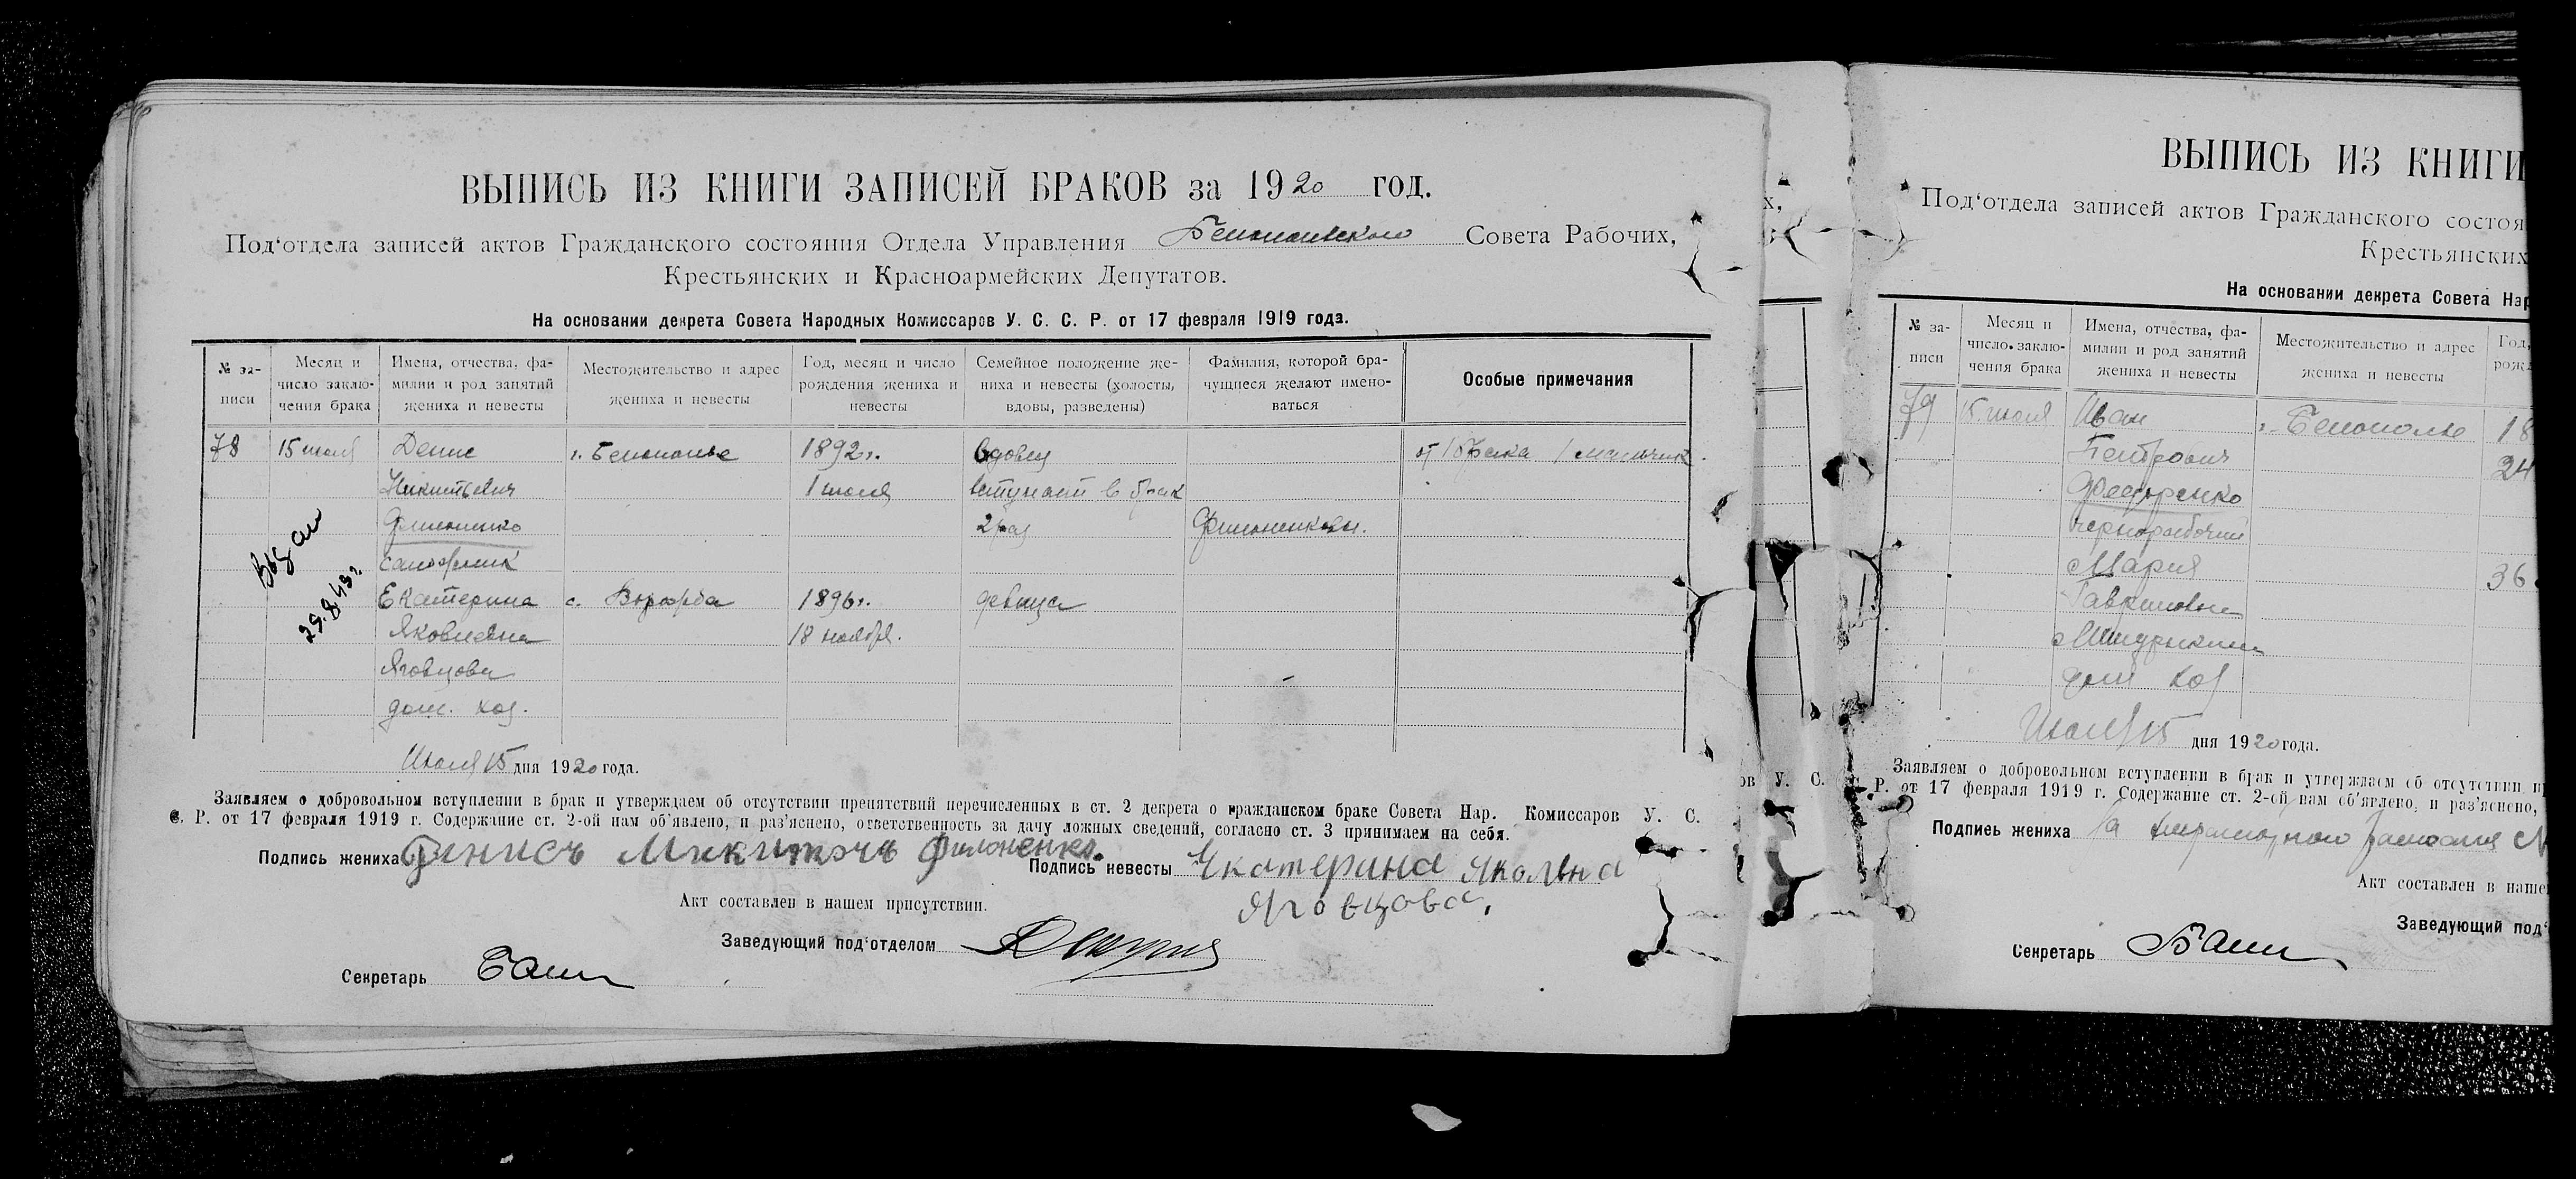 ВЫПИСЬ ИЗ КНИГИ ЗАПИСЕЙ БРАКОВ за 1920 год.
Под'отдела записей актов Гражданского состояния Отдела Управления Белопольского Совета Рабочих,
Крестьянских и Красноармейских Депутатов.
На основании декрета Совета Народных Комиссаров У. С. С. Р. от 17 февраля 1919 года.
№ за-писи Месяц и число заклю-чения брака Имена, отчества, фа-милии и род занятий жениха и невесты Местожительство и адрес жениха и невесты Год, месяц и число рождения жениха и невесты Семейное положение же-ниха и невесты (холосты, вдовы, разведены) Фамилия, которой бра-чущиеся желают имено-ваться Особые примечания
78 15 июля Денис г. Белополье 1892г. Вдовец от 1 брака 1 мальчик
Никитьевич 1 июля вступает в брак
Филоненко 2рая Филоненковы.
сапожник
Екатерина с. Ворожба 1896г. девица
Яковлевна 18 ноября.
Яговцова
дом. хоз.
Выдан
29.8.49г.
Июля 15 дня 1920 года.
Заявляем о добровольном вступлении в брак и утверждаем об отсутствии препятствий перечисленных в ст. 2 декрета о гражданском браке Совета Нар. Комиссаров У. С.
С. Р. от 17 февраля 1919 г. Содержание ст. 2-ой нам об'явлено, и раз'яснено, ответственность за дачу ложных сведений, согласно ст. 3 принимаем на себя.
Подпись жениха Денисъ Микитовчъ Филоненко. Подпись невесты Екатерина Яколвна
Яговцова.
Акт составлен в нашем присутствии.
Заведующий под'отделом
Секретарь
х,
ов У. С.
ВЫПИСЬ ИЗ КНИГИ
Под'отдела записей актов Гражданского состоя
Крестьянских
На основании декрета Совета Нар
№ за-писи Месяц и число заклю-чения брака Имена, отчества, фа-милии и род занятий жениха и невесты Местожительство и адрес жениха и невесты Год, рож
79 15 июля Иван г. Белополье 18
Петрович 24
Федоренко
чернорабочий
Мария 36
Гавриловна
дом хоз
Июля 15 дня 1920 года.
Заявляем о добровольном вступлении в брак и утверждаем об отсутствии п
С. Р. от 17 февраля 1919 г. Содержание ст. 2-ой нам об'явлено, и раз'яснено,
Подпись жениха За
Акт составлен в наше
Заведующий под'
Секретарь